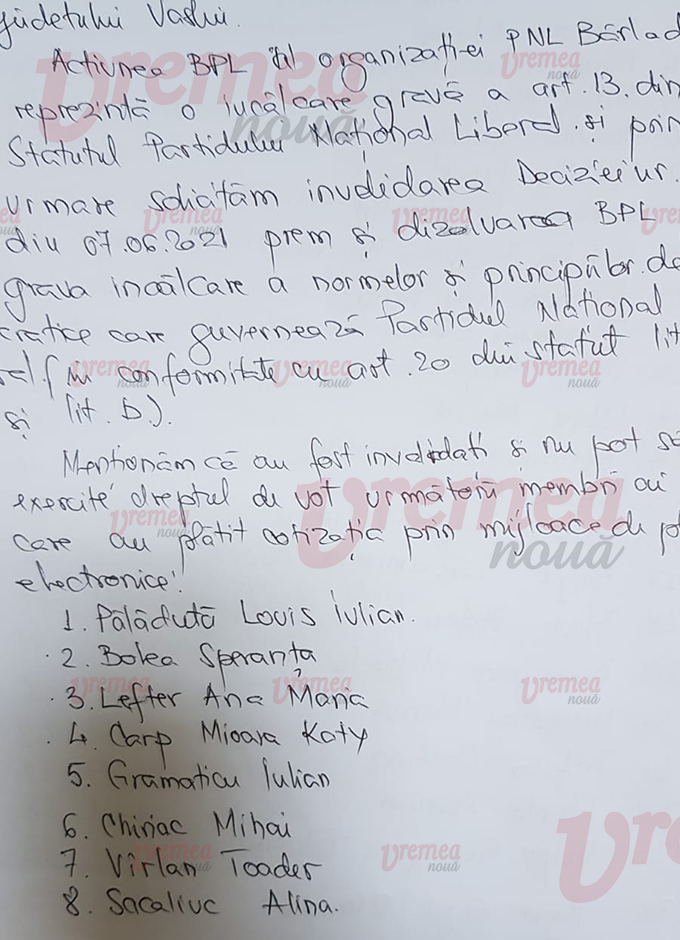 județului Vaslui.
Acțiunea BPL al organizației PNL Bârlad
reprezintă o încălcare gravă a art. 13. din
Statutul Partidului Național Liberal și prin
urmare solicităm invalidarea Deciziei nr.
din 07.06.2021 prem și dizolvarea BPL
grava incălcare a normelor și principiilor de
cratice care guvernează Partidul National
ral (în conformitate cu art. 20 din statut lit
și lit. b).
Menționăm că au fost invalidati și nu pot să
exercite dreptul de vot următorii membri ai
care au plătit cotizația prin mijloace de pl
electronice:
1. Pălăduță Louis Iulian.
2. Bolea Speranța
3. Lefter Ana Maria
4. Carp Mioara Katy
5. Gramaticu Iulian
6. Chiriac Mihai
7. Vîrlan Toader
8. Sacaliuc Alina.
vremea
nouă